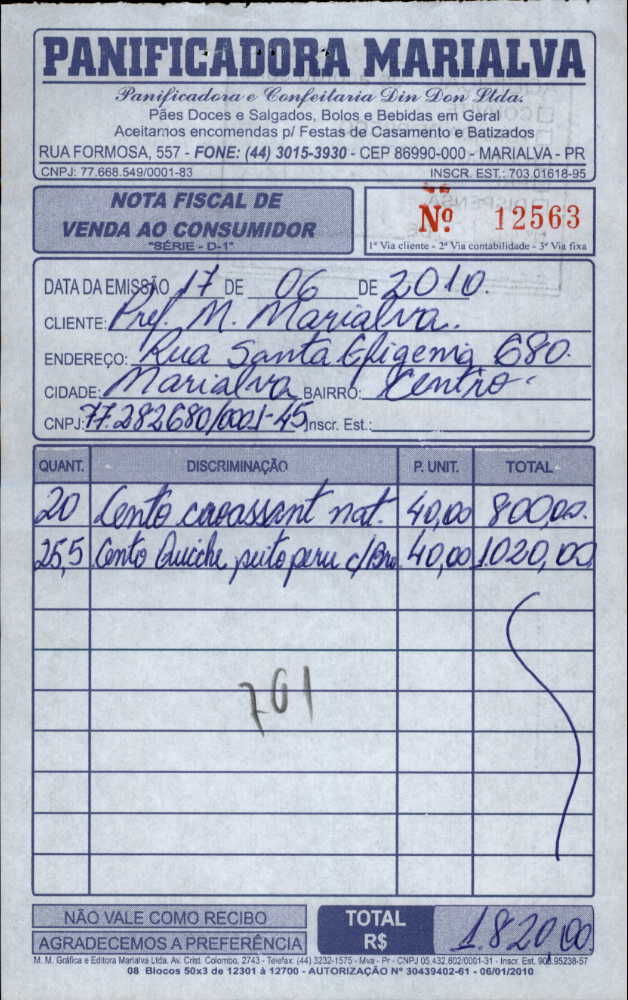 PANIFICADORA MARIALVA
Panificadora e Confeitaria Din Don Ltda.
Pães Doces e Salgados, Bolos e Bebidas em Geral
Aceitamos encomendas p/ Festas de Casamento e Batizados
RUA FORMOSA, 557 - FONE: (44) 3015-3930 - CEP 86990-000 - MARIALVA - PR
CNPJ: 77.668.549/0001-83 INSCR. EST.: 703.01618-95
NOTA FISCAL DE
VENDA AO CONSUMIDOR
"SÉRIE - D-1"
Nº 12563
1ª Via cliente - 2ª Via contabilidade - 3ª Via fixa
DATA DA EMISSÃO 17 DE 06 DE 2010.
CLIENTE: Pref. M. Marialva.
ENDEREÇO: Rua Santa Efigenia 680.
CIDADE: Marialva BAIRRO: Centro
CNPJ: 77.282680/0001-45 Inscr. Est.:
QUANT. DISCRIMINAÇÃO P. UNIT. TOTAL
20 Cento croassant nat. 40,00 800,00.
25,5 Cento Quiche peito peru c/ 40,00 1.020,00
761
NÃO VALE COMO RECIBO
AGRADECEMOS A PREFERÊNCIA
TOTAL R$ 1.820,00
M. M. Gráfica e Editora Marialva Ltda. Av. Crist. Colombo, 2743 - Telefax: (44) 3232-1575 - Mva - Pr - CNPJ 05.432.602/0001-31 - Inscr. Est. 902.95238-57
08 Blocos 50x3 de 12301 à 12700 - AUTORIZAÇÃO Nº 30439402-61 - 06/01/2010